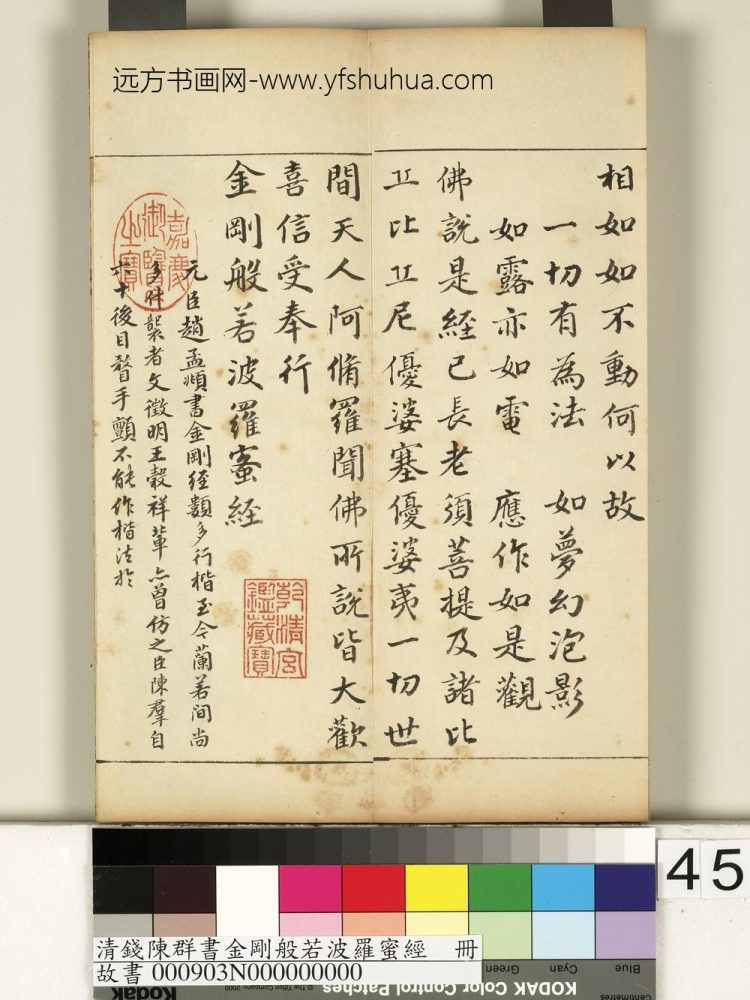 远方书画网-www.yfshuhua.com
相如如不動何以故
一切有為法 如夢幻泡影
如露亦如電 應作如是觀
佛說是經已長老須菩提及諸比
丘比丘尼優婆塞優婆夷一切世
間天人阿脩羅聞佛所說皆大歡
喜信受奉行
金剛般若波羅蜜経
元臣趙孟頫書金剛経數多行楷至今蘭若間尚
多什襲者文徵明王穀祥輩亦曽仿之臣陳羣自
六十後目瞀手顫不能作楷法於
嘉慶御覽之寶
乾清宮鑑藏寶
45
清錢陳群書金剛般若波羅蜜經 冊
故書 000903N000000000
Green Cyan Blue
Kodak
© The Tiffen Company, 2000
KODAK Color Control Patches
Centimetres